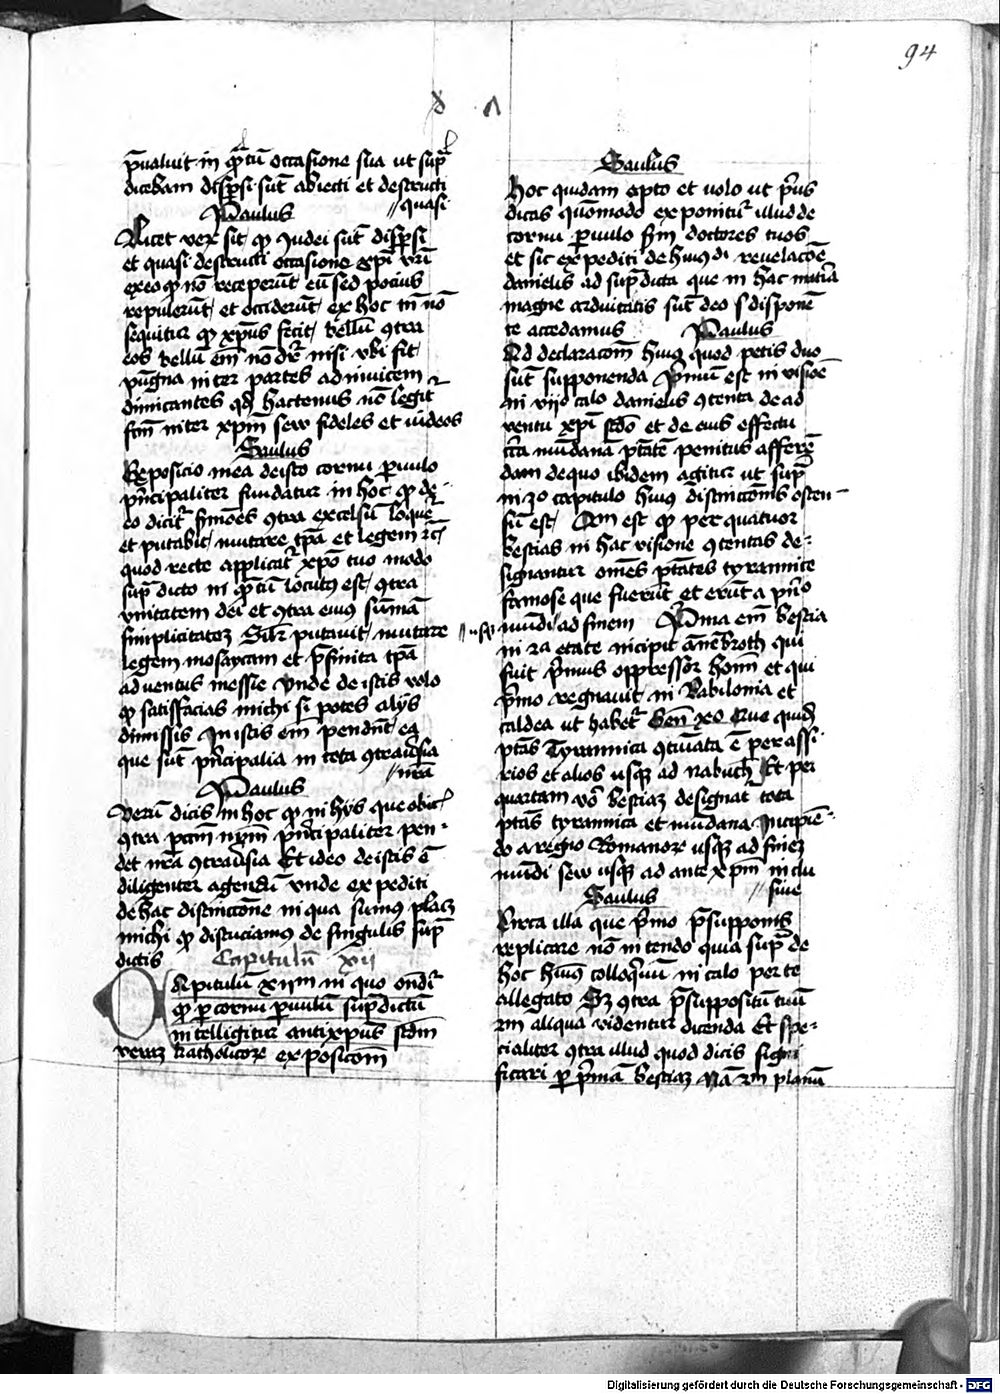 94
p̄ualuit in q̄ntū occasione sua ut sup̄
dicebam disp̄si sūt abiecti et destructi
//quasi
Paulus
Licet verū sit q̄ Judei sūt disp̄si
et quasi destructi occasione xp̄i vn̄
ex eo q̄ nō receperūt eū sed pocius
repulerūt et occiderūt ex hoc tn̄ nō
sequitur q̄ xp̄us fecit bellū ɔtra
eos bellū em̄ nō dr̄ nisi vbi fit
pūgna inter partes adinuicem
dimicantes qd̄ hactenus nō legit᷑
fc̄m inter xp̄m seu fideles et iudeos
Saulus
Reposicio mea de isto cornu p̱uulo
pͥncipaliter fundatur in hoc q̄ de
eo dicit᷑ sermōes ɔtra excelsū loquet᷑
et putabit mutare tp̄a et legem ⁊c̄
quod recte applicat᷑ xp̄o tuo modo
sup̄ dicto in q̄ntū locutus est ɔtra
vnitatem dei et ɔtra eius sūmā
simplicitatē Silr̄ putauit mutare
legem mosaycam et p̄finita tp̄a
aduentus messie Vnde de istis volo
q̄ satisfacias michi si potes alijs
dimissis In istis em̄ pendēt ea
que sūt pͥncipalia in tota ɔtrau̓sia
//nr̄a
Paulus
Verū dicis in hoc q̄ in hijs que obicit᷑
ɔtra nr̄m pͥncipaliter pen-
det nr̄a ɔtrau̓sia Et ideo de istis ē
diligenter agendū vnde expediti
de hac distinccōne in qua sumus placet
michi q̄ discuciamus de singulis sup̄
dictis Capitulū xii
Capitulū xiim in quo ondit᷑
q̄ p̱ cornu p̱uulū sup̄dictū
intelligitur antixp̄us scdm
verā katholicorꝝ exposicōm
Saulus
Hoc quidam opto et uolo ut pͥus
dicas quōmodo exponitur illud de
cornu p̱uulo scd̄m doctores tuos
et sic expediti de huiusmodi reuelacōe
danielis ad sup̄dicta que in hac matīa
magne arduitatis sūt deo disponē
te accedamus Paulus
Ad declaracōm huiꝰ quod petis duo
sūt supponenda Pͥmū est in visiōe
in viiͦ caͦlo danielis ɔtenta de ad
uentu xp̄i scd̄o et de eius effectu
cͥca mūdanā ptātē penitus afferē
dam de quo ibidem agitur ut sup̄
in 3o capitulo huiꝰ distinccōnis osten-
sū est est q̄ per quatuor
bestias in hac visione ɔtentas de-
signantur om̄es ptātes tyrannice
famose que fuerūt et erūt a pͥn̄o
mūdi ad finem Pͥma em̄ bestia
in 2a etate incipit a nēbroth qui
fuit pͥmus oppressor hoīm et qui
pͥmo regnauit in Babilonia et
caldea ut habet᷑ Gen̄ xo Que quid̄
ptās Tyrannica ɔtinuata ē per assi-
rios et alios usqꝫ ad nabuch̄ Et per
quartam vō bestiā designat᷑ tota
ptās tyrannica et mūdana Incipiē-
do a regno Romanorꝝ usqꝫ ad finē
mūdi seu usqꝫ ad antexp̄m inclu
//siue
Saulus
Circa illa que pͥmo p̄supponis
replicare nō intendo quia sup̄ de
hoc huiꝰ colloquiū in caͦlo per te
allegato Sꝫ ɔtra p̄suppositū tuū
2m aliqua videntur dicenda Et spe-
cialiter ɔtra illud quod dicis signi
ficari p̱ pͥmā bestiā Nā 2m planū
Digitalisierung gefördert durch die Deutsche Forschungsgemeinschaft - DFG